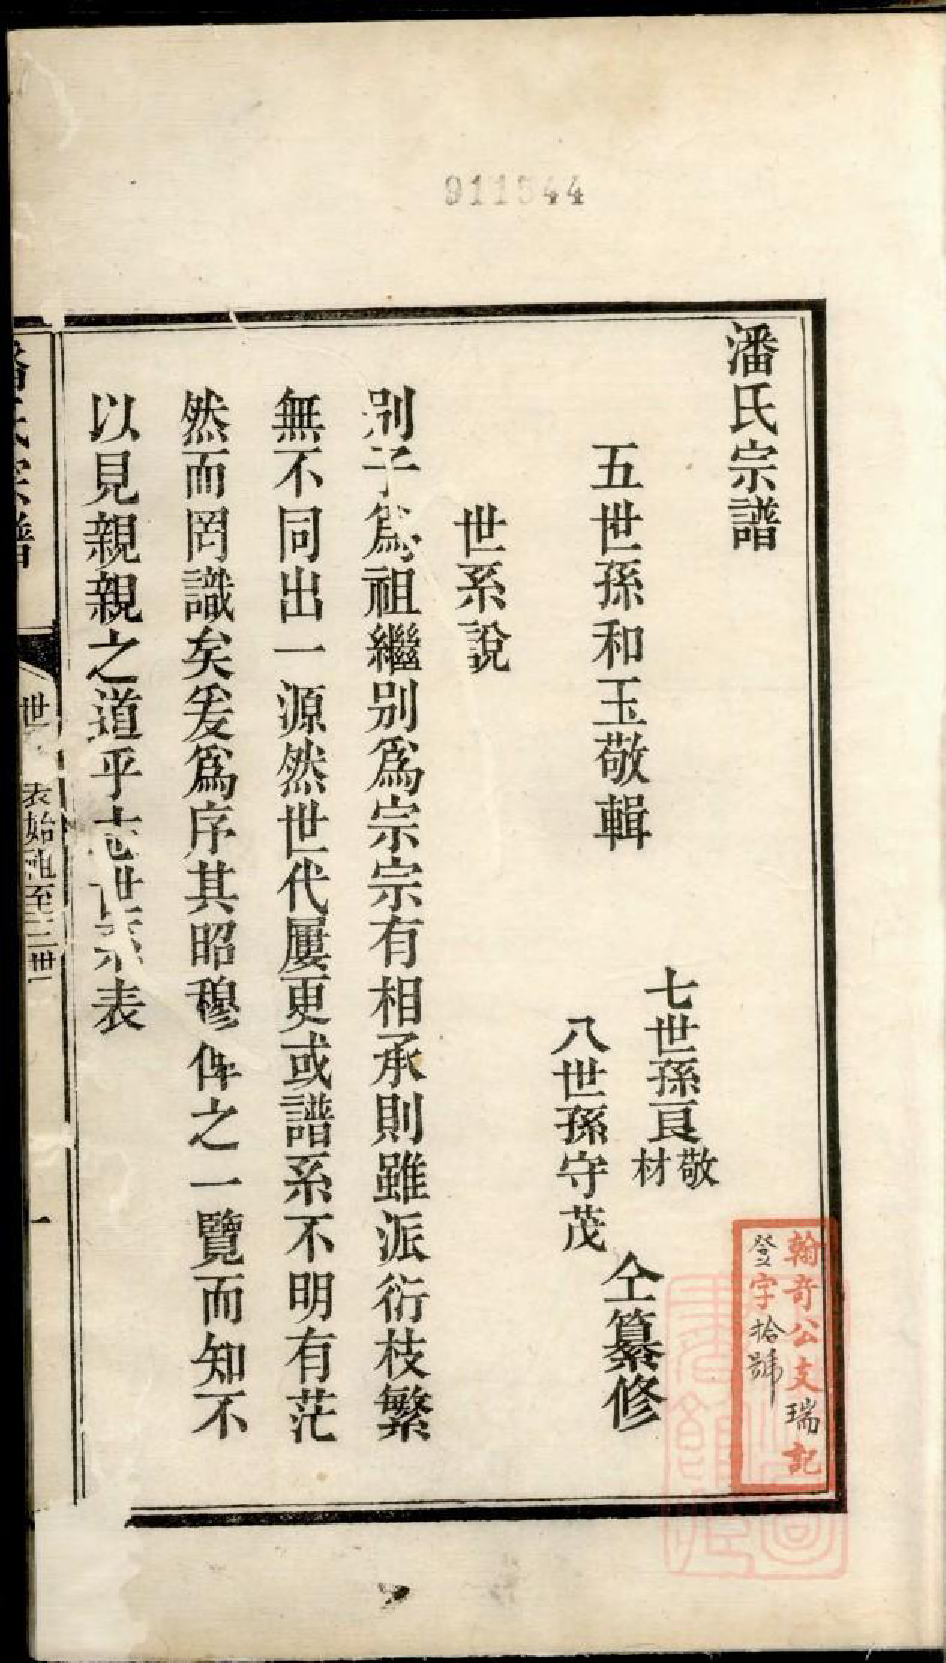 911544
潘氏宗譜
五世孫和玉敬輯
七世孫良敬材
八世孫守茂
仝纂修
世系說
别子爲祖繼别爲宗宗有相承則雖派衍枝繁
無不同出一源然世代屢更或譜系不明有茫
然而罔識矣爰爲序其昭穆俾之一覽而知不
以見親親之道乎志世系表
潘氏宗譜
世 表始祖至三世
一
翰奇公支瑞記
癹字拾號